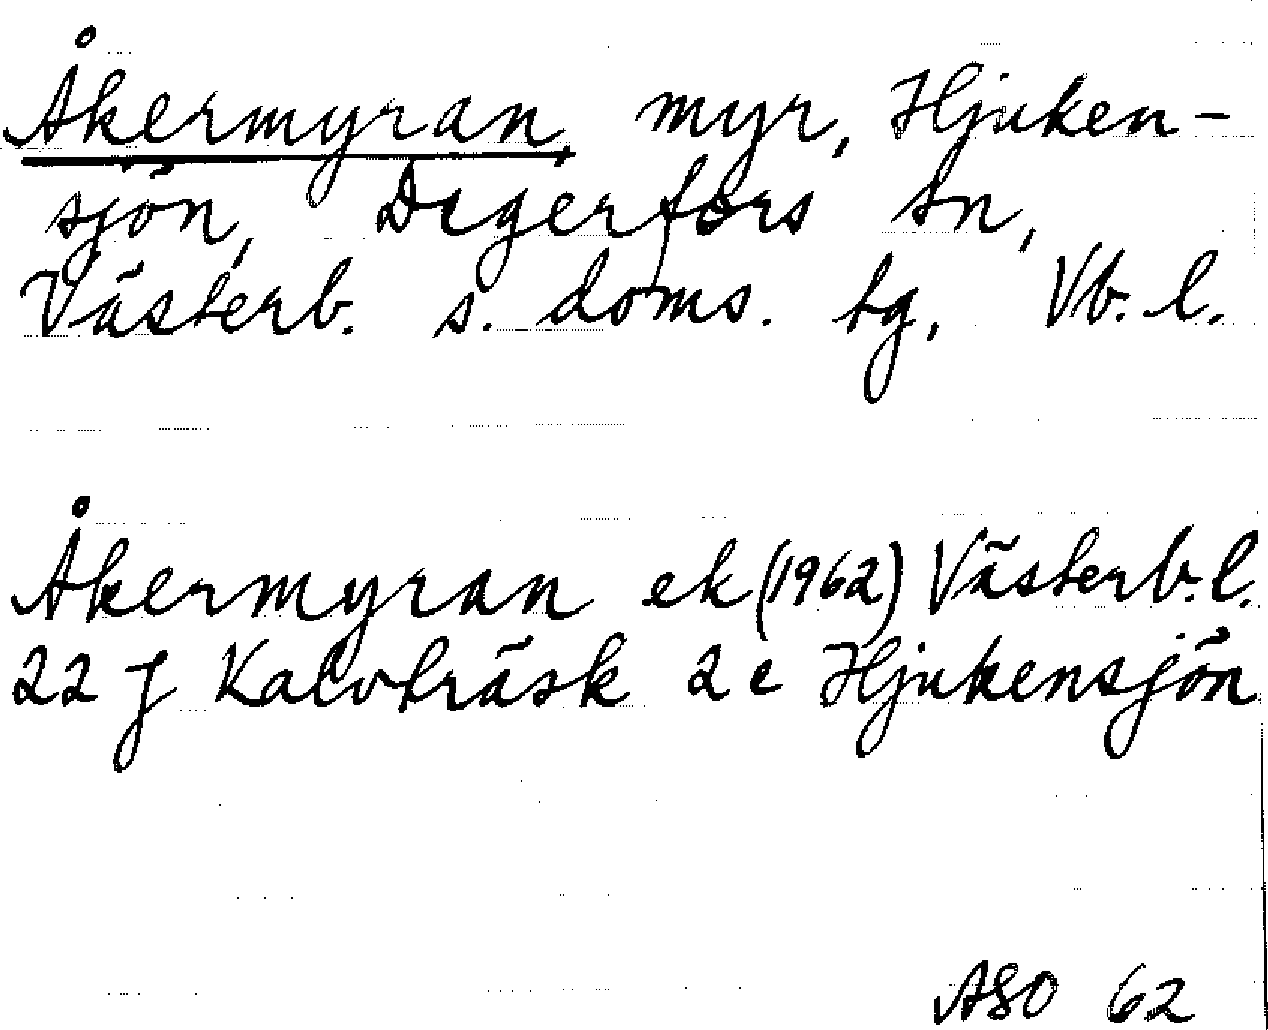 Åkermyran, myr, Hjuken-
sjön, Degerfors sn,
Västerb. s. doms. tg, Vb. l.
Åkermyran ek (1962) Västerb. l.
22 J Kalvträsk 2 c Hjukensjön
ASO 62